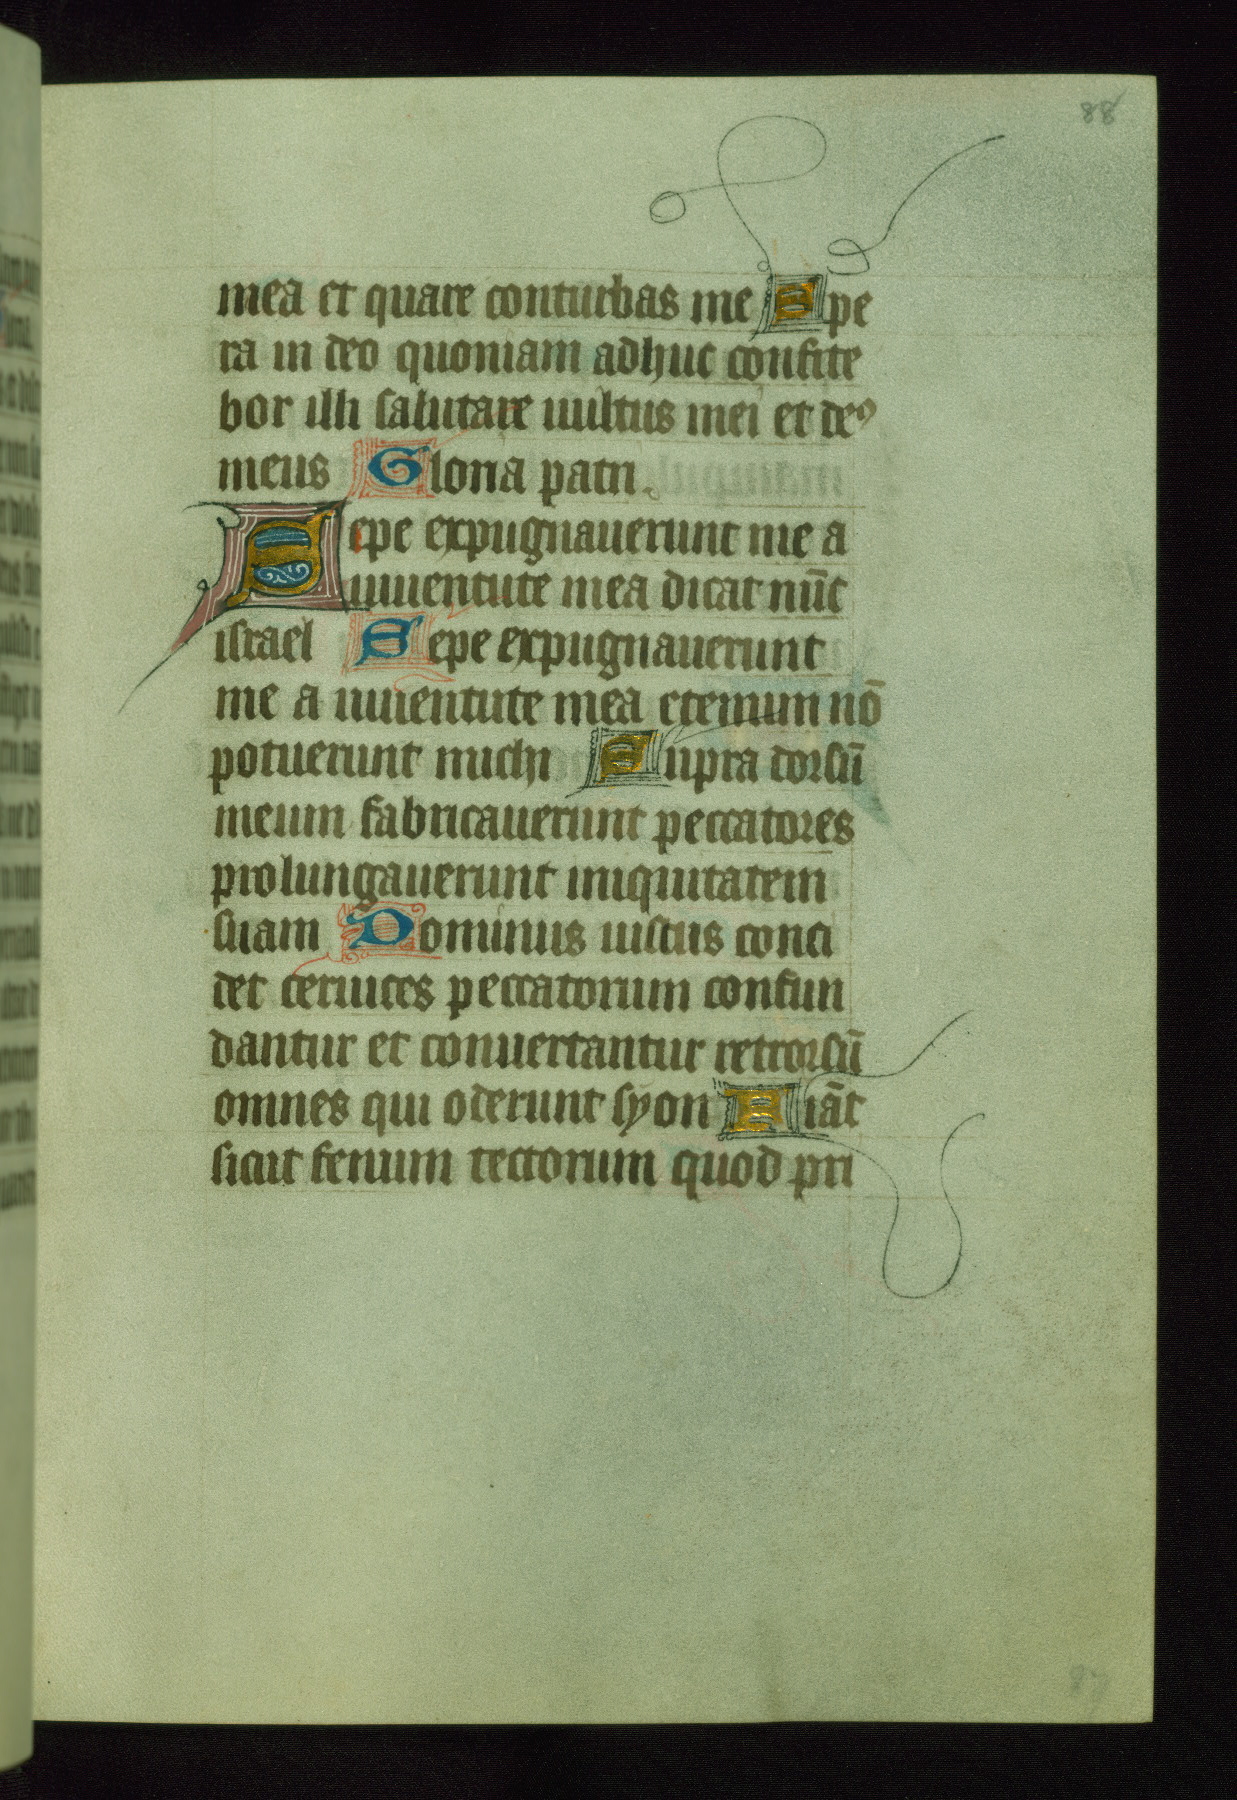 88
mea et quare conturbas me Spe
ra in deo quoniam adhuc confite
bor illi salutare uultus mei et deꝰ
meus Gloria patri.
Sepe expugnauerunt me a
iuuentute mea dicat nūc
israel Sepe expugnauerunt
me a iuuentute mea etenim nō
potuerunt michi Supra dorsū
meum fabricauerunt peccatores
prolungauerunt iniquitatem
suam Dominus iustus conci
det ceruices peccatorum confun
dantur et conuertantur retrorsū
omnes qui oderunt syon Fiāt
sicut fenum tectorum quod pri
87